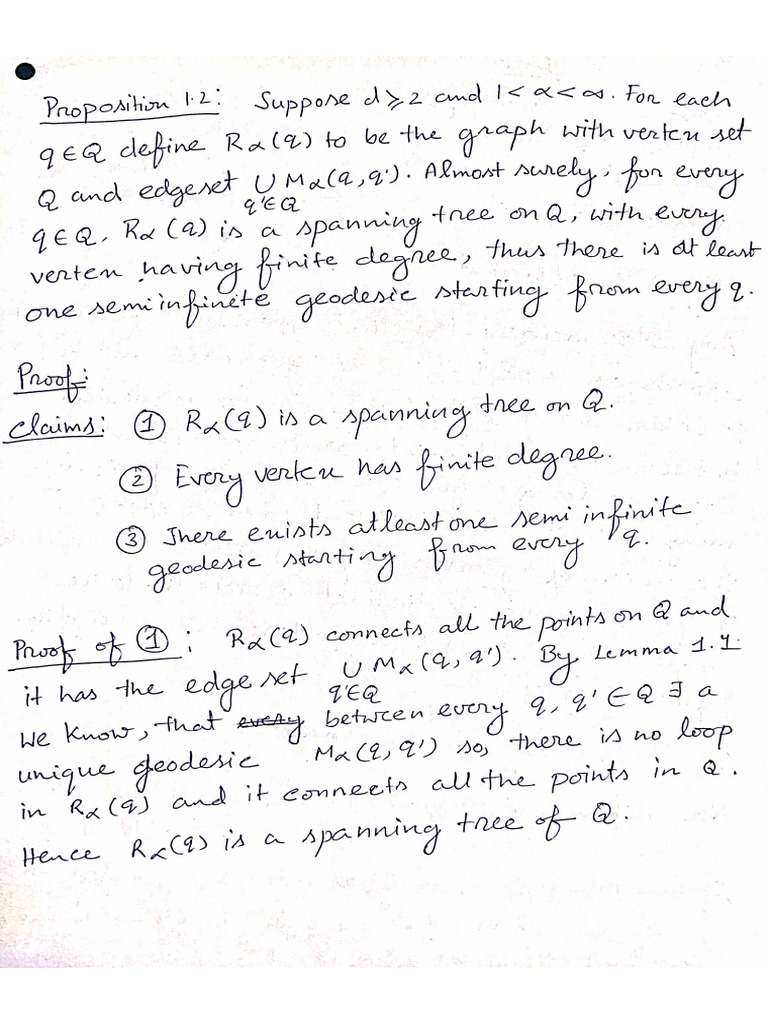 Proposition 1.2: Suppose d ⩾ 2 and 1 < α < ∞. For each
q ∈ Q define Rα(q) to be the graph with vertex set
Q and edge set ∪ Mα(q, q'). Almost surely, for every
q'∈Q
q ∈ Q, Rα(q) is a spanning tree on Q, with every
vertex having finite degree, thus there is at least
one semi infinite geodesic starting from every q.
Proof:
Claims: ① Rα(q) is a spanning tree on Q.
② Every vertex has finite degree.
③ There exists atleast one semi infinite
geodesic starting from every q.
Proof of ①: Rα(q) connects all the points on Q and
it has the edge set ∪ Mα(q, q'). By Lemma 1.1
q'∈Q
we know, that every between every q, q' ∈ Q ∃ a
unique geodesic Mα(q, q') so, there is no loop
in Rα(q) and it connects all the points in Q.
Hence Rα(q) is a spanning tree of Q.